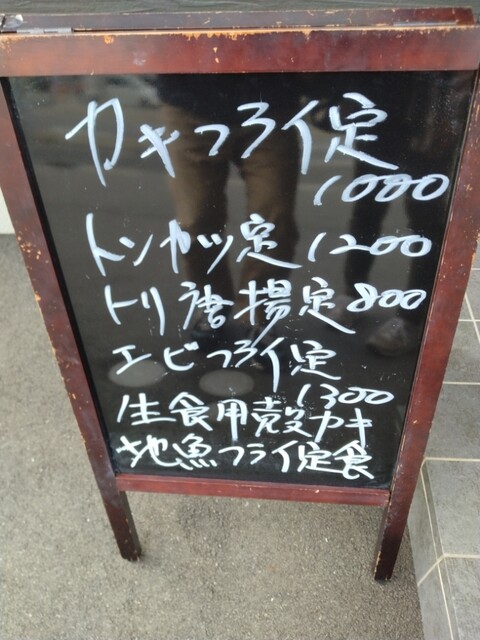 カキフライ定
1000
トンカツ定 1200
トリ唐揚定 800
エビフライ定
1300
生食用殻カキ
地魚フライ定食